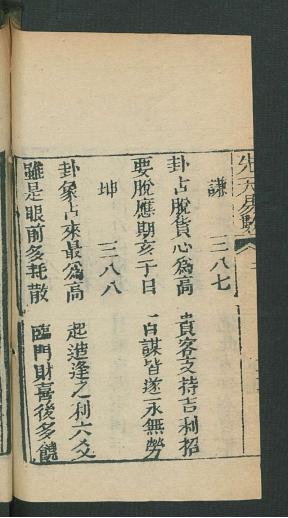 先天易數
謙 三八七
卦占脫貨心為高 貴客支持吉利招
要脫應期亥子日 百謀皆遂永無勞
坤 三八八
卦象占來最爲高 起造逢之利六爻
雖是眼前多耗散 臨門財喜後多饒